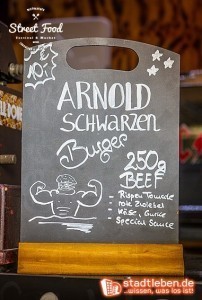 Street Food
Festival & Market
10,-
ARNOLD
SCHWARZEN
Burger
250g
BEEF
Rispen Tomate
rote Zwiebel
Käse, Gurke
Special Sauce
stadtleben.de
...wissen, was los ist!